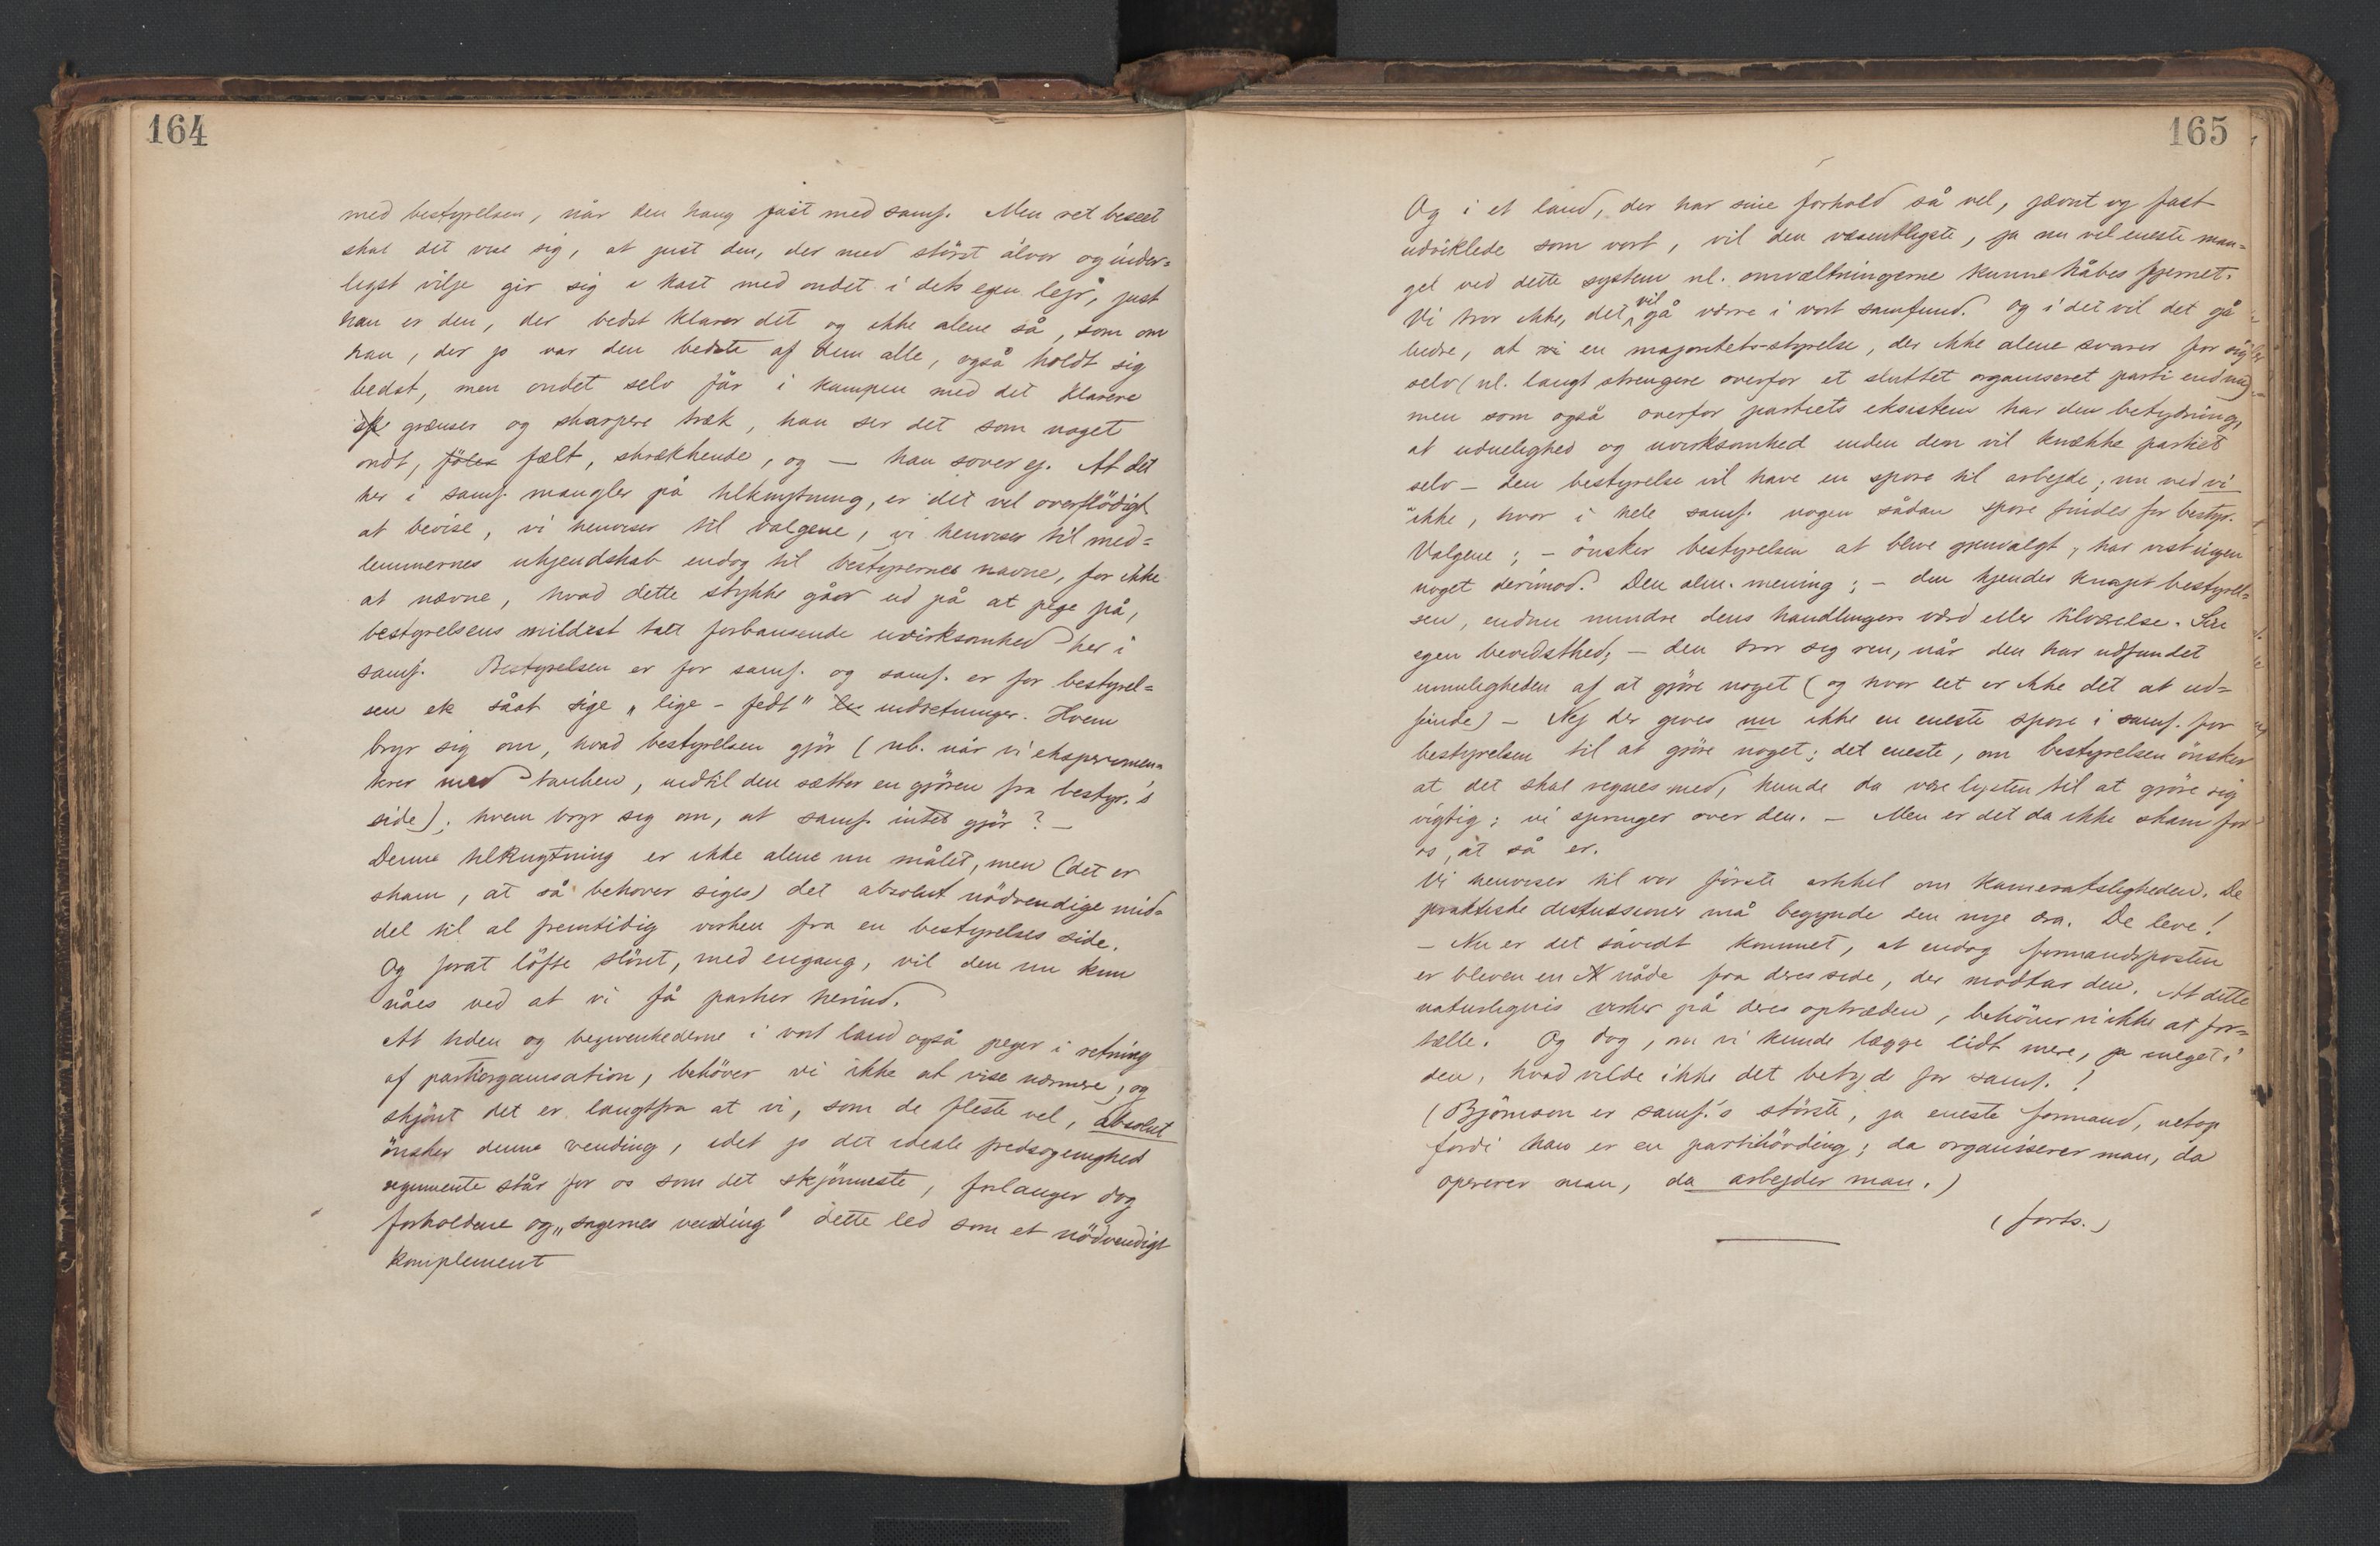 164
med bestyrelsen, når den hang fast med samf. Men ret beseet
skal det vise sig, at just den, der med störst alvor og inder-
ligst vilje gir sig i kast med ondet i dets egen lejr, just
han er den, der bedst klarer det og ikke alene så, som om
han, der jo var den bedste af dem alle, også holdt sig
bedst, men ondet selv får i kampen med det klarere
grænser og skarpere træk, han ser det som noget
ondt, föler fælt, skrækkende, og — han sover ej. At det
her i samf. mangler på tilknytning, er det vel overflödigt
at bevise, vi henviser til valgene, vi henviser til med-
lemmernes ukjendskab endog til bestyrernes navne, for ikke
at nævne, hvad dette stykke gåer ud på at pege på,
bestyrelsens mildest talt forbausende uvirksomhed her i
samf. Bestyrelsen er for samf. og samf. er for bestyrel-
sen så at sige „lige-fedt" indretninger. Hvem
bryr sig om, hvad bestyrelsen gjör (nb. når vi eksperimen-
terer med tanken, indtil den sætter en gjören fra bestyr.'s
side); hvem bryr sig om, at samf. intet gjör? —
Denne tilknytning er ikke alene nu målet, men (det er
skam, at så behöver siges) det absolut nödvendige mid-
del til al fremtidig virken fra en bestyrelses side.
Og forat löfte slöret, med engang, vil den nu kun
nåes ved at vi få partier herind.
At tiden og begivenhederne i vort land også peger i retning
af partiorganisation, behöver vi ikke at vise nærmere, og
skjönt det er langtfra at vi, som de fleste vel, absolut
önsker denne vending, idet jo det ideale fredsogenighed
regimente står for os som det skjönneste, forlanger dog
forholdene og „sagernes vending" dette led som et nödvendigt
komplement
165
Og i et land, der har sine forhold så vel, jævnt og fast
udviklede som vort, vil den væsentligste, ja nu vel eneste man-
gel ved dette system nl. omvæltningerne kunne håbes fjernet.
Vi tror ikke, det vil gå værre i vort samfund. Og i det vil det gå
bedre, at vi en majoritets-styrelse, der ikke alene svarer for sig
selv (nl. langt strengere overfor et sluttet organiseret parti end nu)
men som også overfor partiets eksistens har den betydning,
at uduelighed og uvirksomhed inden den vil knække partiet
selv — den bestyrelse vil have en spore til arbejde; nu ved vi
ikke, hvor i hele samf. nogen sådan spore findes for bestyr.
Valgene; — önsker bestyrelsen at blive gjenvalgt, har vist ingen
noget derimod. Den alm. mening; — den kjender knapt bestyrel-
sen, endnu mindre dens handlingers værd eller tilværelse. Sin
egen bevidsthed; — den tror sig ren, når den har udfundet
umuligheden af at gjöre noget (og hvor let er ikke det at ud-
finde) — Nej der gives nu ikke en eneste spore i samf. for
bestyrelsen til at gjöre noget; det eneste, om bestyrelsen önsker
at det skal regnes med, kunde da være lysten til at gjöre sig
vigtig; vi springer over den. — Men er det da ikke skam for
os, at så er.
Vi henviser til vor förste artikel om kameratsligheden. De
praktiske diskussioner må begynde den nye æra. De leve!
— Nu er det såvidt kommet, at endog formandsposten
er bleven en nåde fra deres side, der modtar den. At dette
naturligvis virker på deres optræden, behöver vi ikke at for-
tælle. Og dog, om vi kunde lægge lidt mere, ja meget i
den, hvad vilde ikke det betyde for samf.!
(Björnson er samf.'s störste, ja eneste formand, netop
fordi han er en partihövding; da organiserer man, da
opererer man, da arbejder man.)
(forts.)